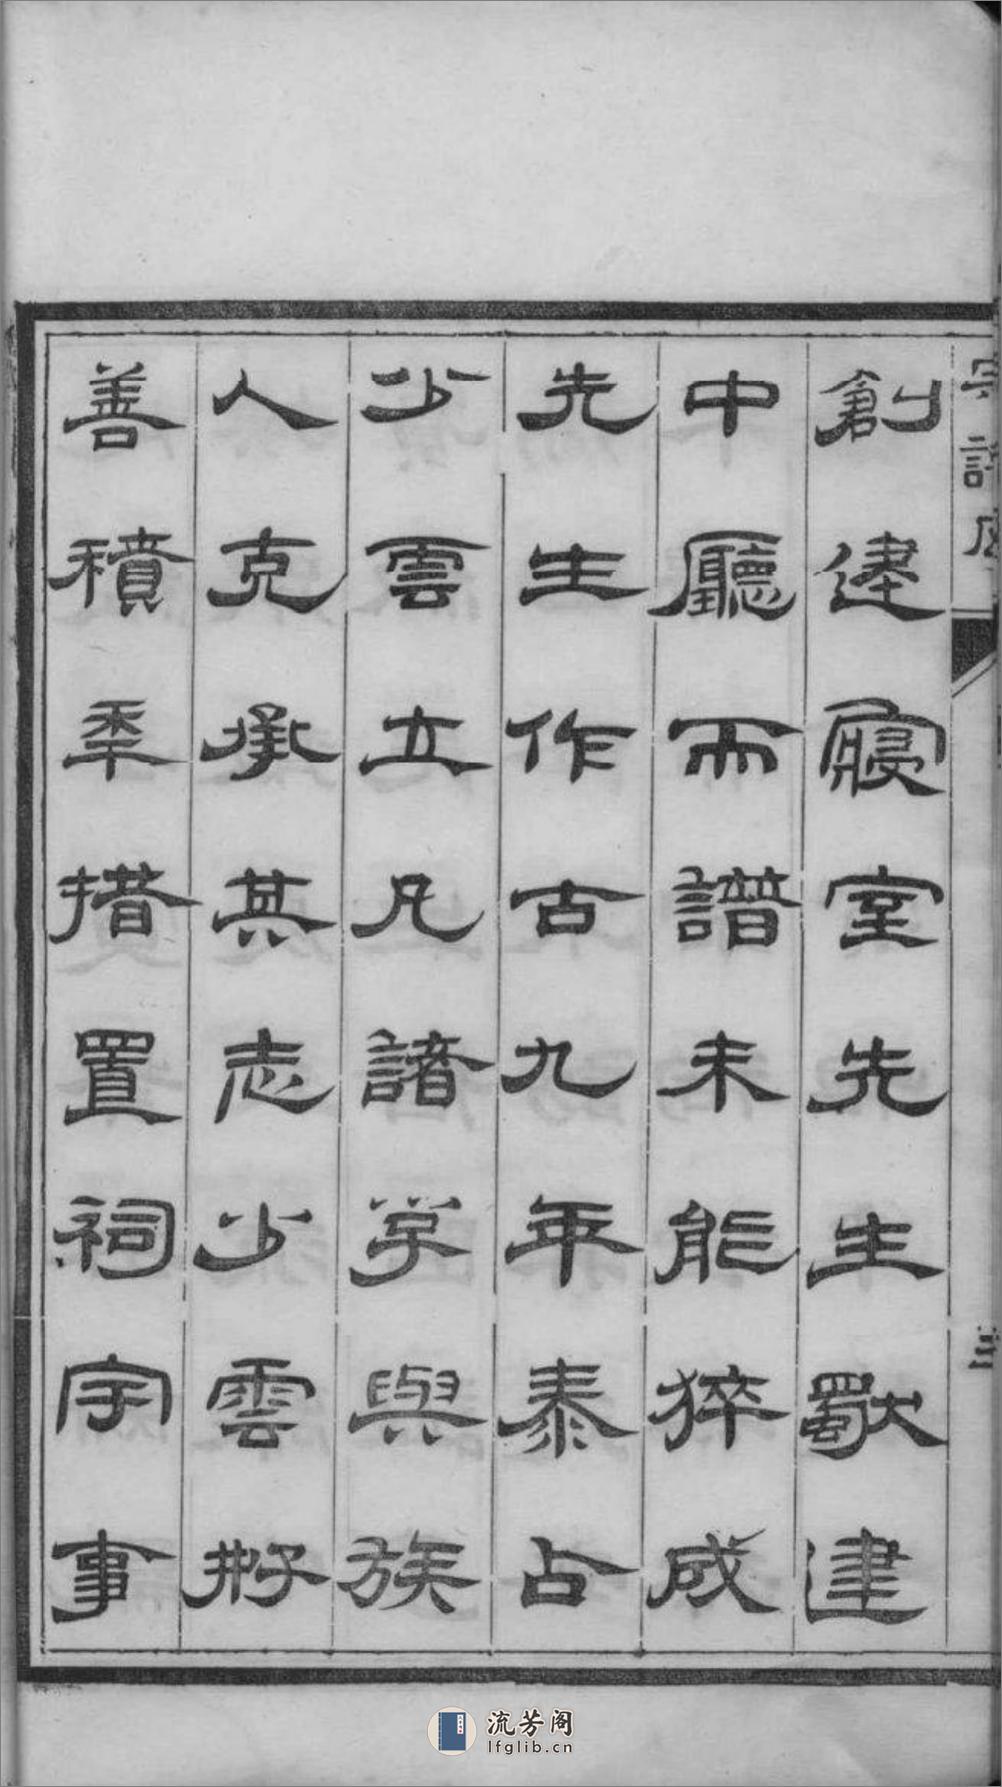 創建寢室先生獻建
中廳而譜未能猝成
先生作古九年泰占
少雲立凡諸学與族
人克承其志少雲
善積年措置祠宇事
流芳阁
lfglib.cn